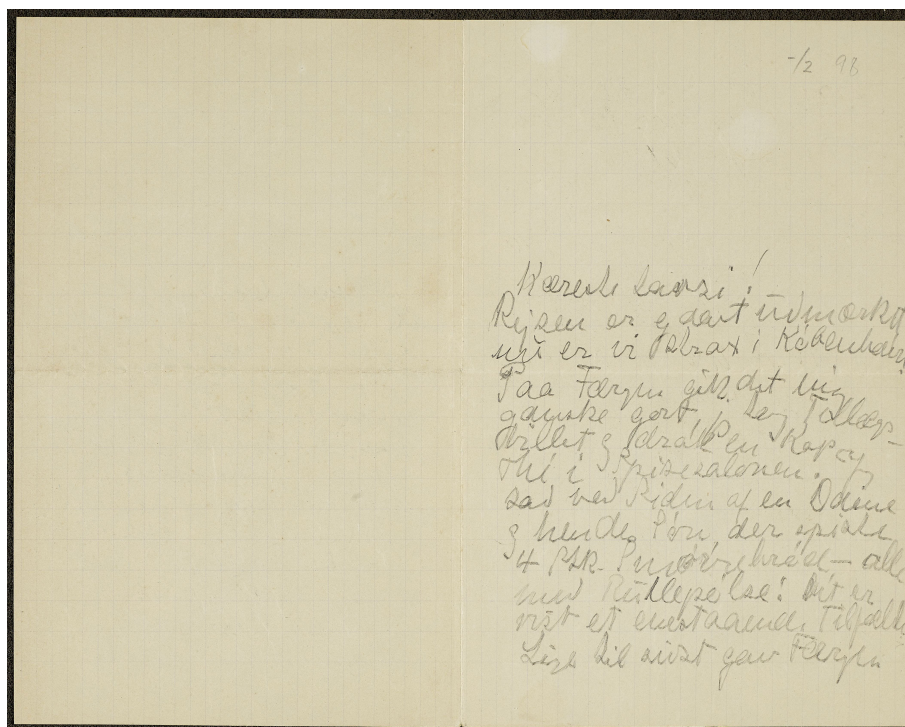 -/2 98
Kæreste !
Rejsen er gået udmærket
nu er vi strax i København.
Paa Færgen gik det mig
ganske godt, jeg Tillægs-
billet & drak en Kop
Thé i Spisesalonen.
sad ved Siden af en Dame
& hendes Søn, der spiste
4 Stk. Smørrebrød — alle
med Rullepølse! Det er
vist et enestaaende Tilfælde
Lige til sidst gav Færgen